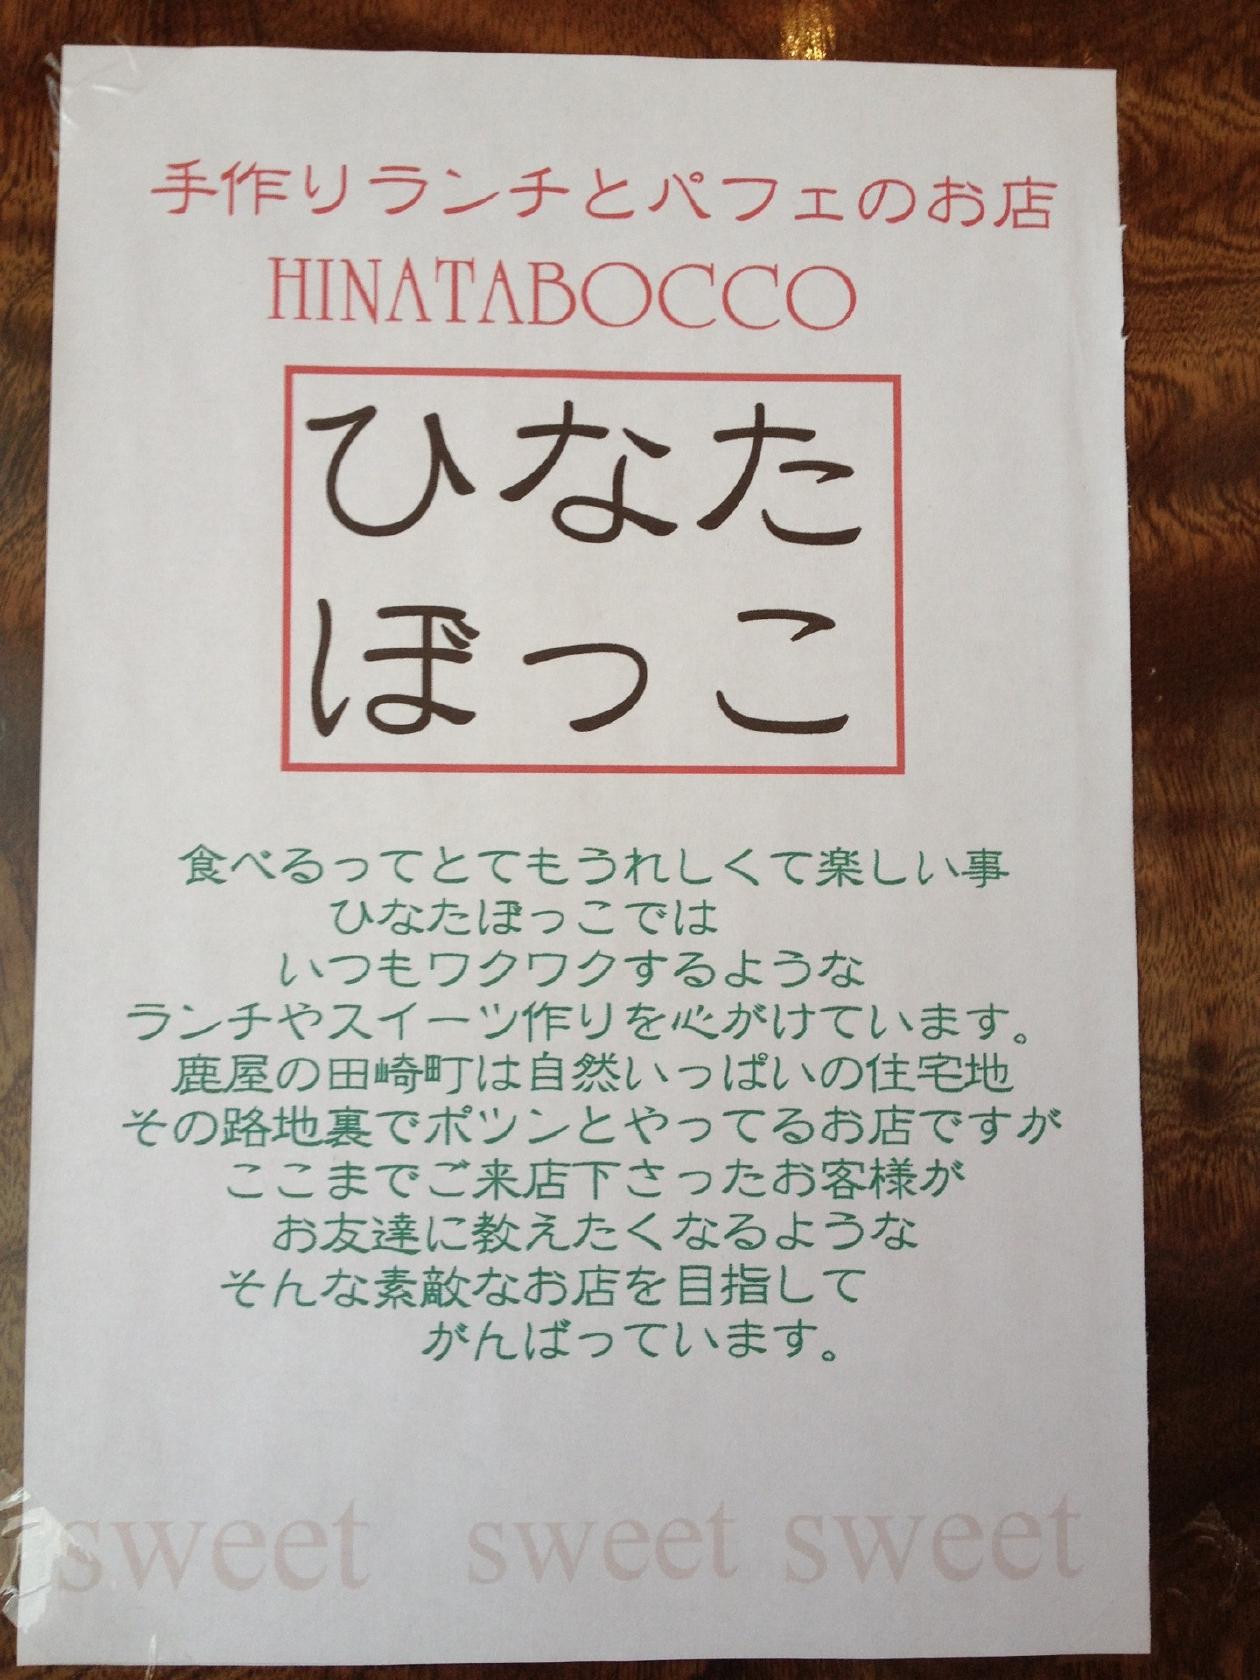 手作りランチとパフェのお店
HINATABOCCO
ひなた
ぼっこ
食べるってとてもうれしくて楽しい事
ひなたぼっこでは
いつもワクワクするような
ランチやスイーツ作りを心がけています。
鹿屋の田崎町は自然いっぱいの住宅地
その路地裏でポツンとやってるお店ですが
ここまでご来店下さったお客様が
お友達に教えたくなるような
そんな素敵なお店を目指して
がんばっています。
sweet sweet sweet